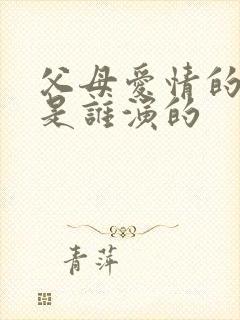 父母爱情的
是誰演的
青萍